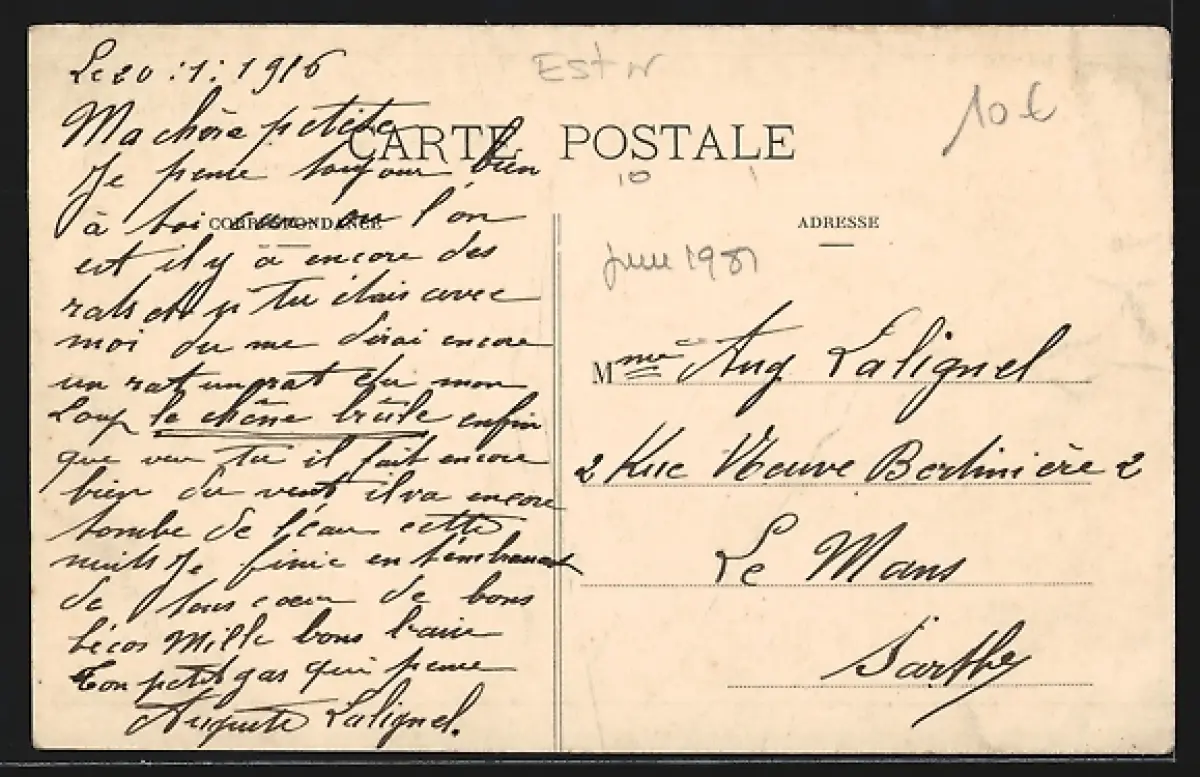 Le 20 : 1 : 1916
Ma chère petite
Je pense toujour bien
à toi car ou l'on
est il y a encore des
rats et si tu étais avec
moi du me dirai encore
un rat un rat du mon
Loup le chêne brûle enfin
que veu tu il fait encore
bien du vent il va encore
tombe de l'eau cette
nuits Je finie en t'embrassant
de tous coeur de bons
bécos Mille bons baise
Ton petit gas qui pense
Auguste Lalignel.
Est N
10 €
CARTE POSTALE
10
CORRESPONDANCE
ADRESSE
1981
Mme Aug Lalignel
2 Rue Neuve Bertinière 2
Le Mans
Sarthe